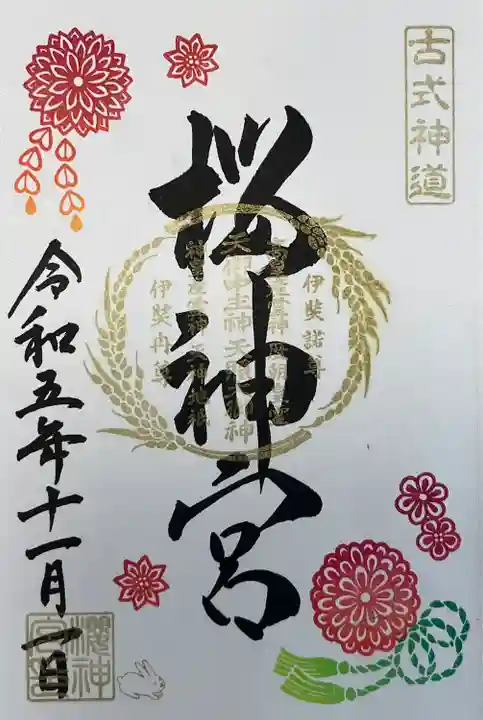 古式神道
桜神宮
伊奘諾尊
天御中主神
伊奘冉尊
令和五年十一月一日